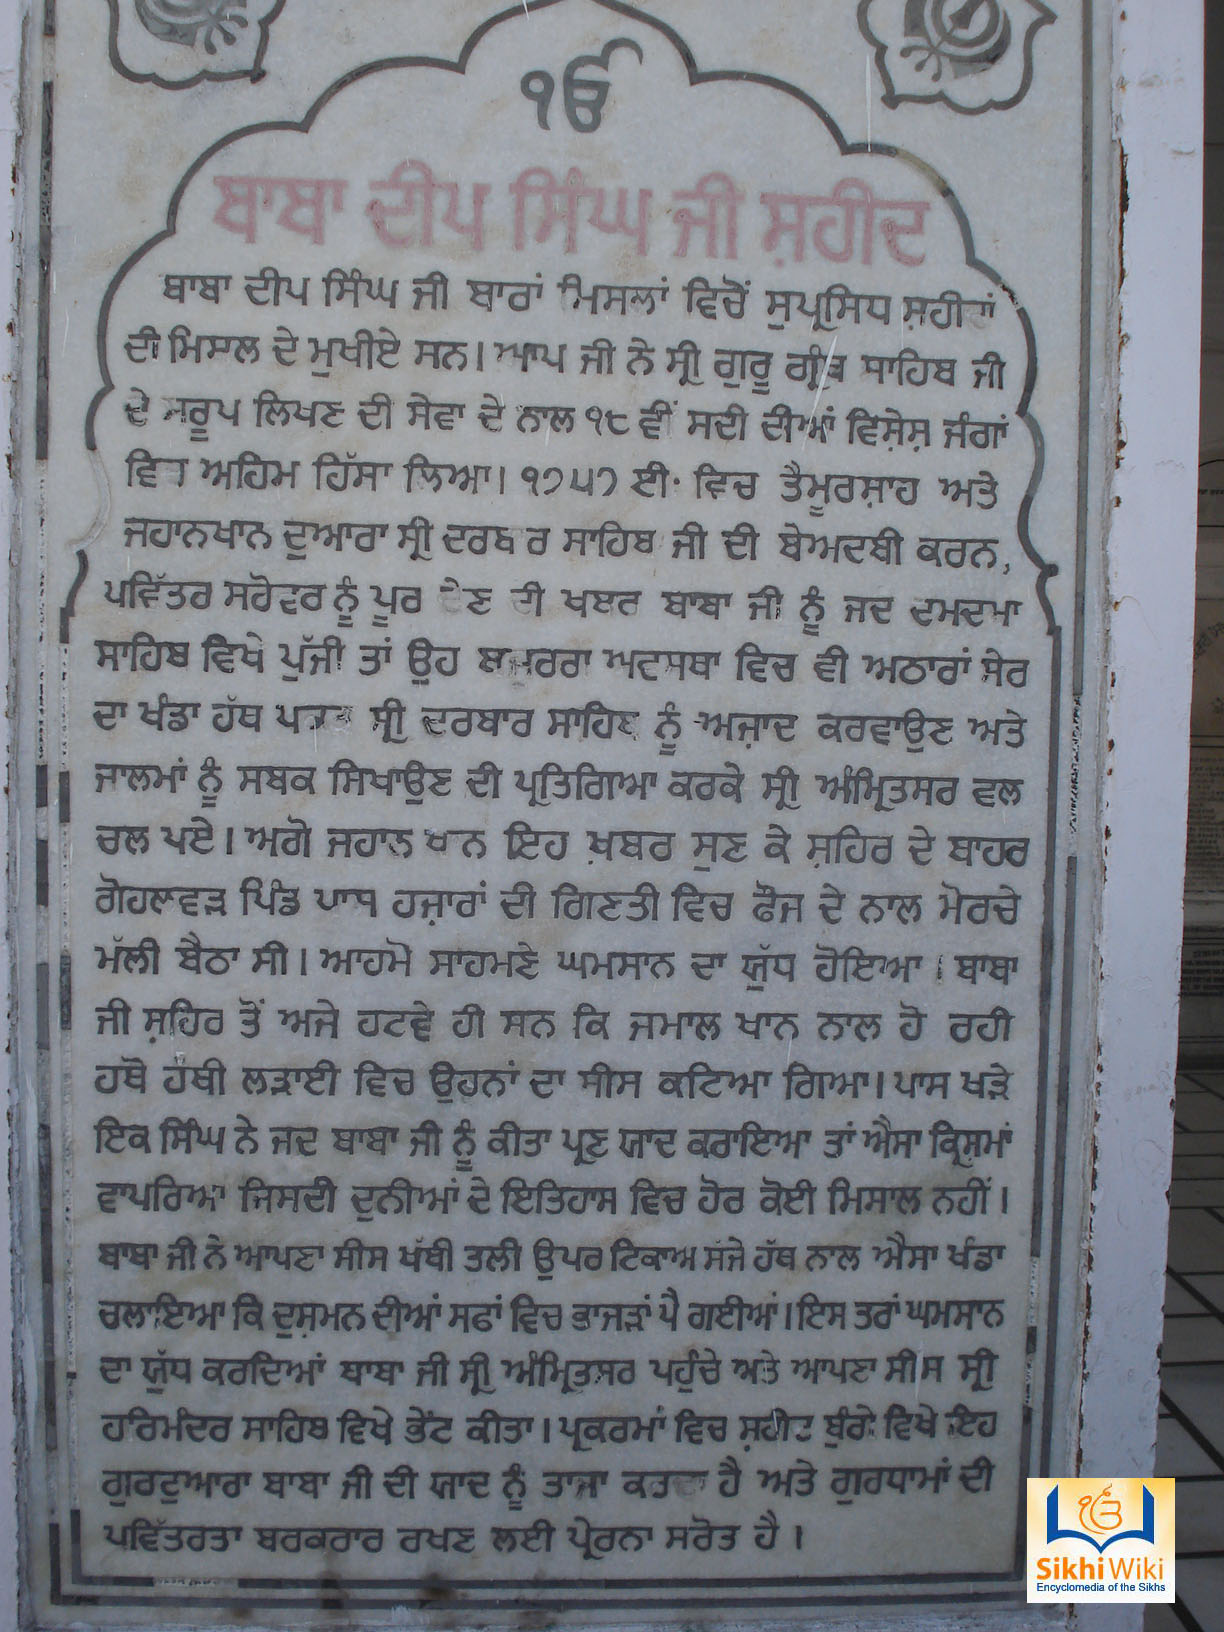 ੴ
ਬਾਬਾ ਦੀਪ ਸਿੰਘ ਜੀ ਸ਼ਹੀਦ
ਬਾਬਾ ਦੀਪ ਸਿੰਘ ਜੀ ਬਾਰਾਂ ਮਿਸਲਾਂ ਵਿਚੋਂ ਸੁਪ੍ਰਸਿਧ ਸ਼ਹੀਦਾਂ
ਦੀ ਮਿਸਾਲ ਦੇ ਮੁਖੀਏ ਸਨ। ਆਪ ਜੀ ਨੇ ਸ੍ਰੀ ਗੁਰੂ ਗ੍ਰੰਥ ਸਾਹਿਬ ਜੀ
ਦੇ ਸਰੂਪ ਲਿਖਣ ਦੀ ਸੇਵਾ ਦੇ ਨਾਲ ੧੮ ਵੀਂ ਸਦੀ ਦੀਆਂ ਵਿਸ਼ੇਸ਼ ਜੰਗਾਂ
ਵਿਚ ਅਹਿਮ ਹਿੱਸਾ ਲਿਆ। ੧੭੫੭ ਈ. ਵਿਚ ਤੈਮੂਰਸ਼ਾਹ ਅਤੇ
ਜਹਾਨਖਾਨ ਦੁਆਰਾ ਸ੍ਰੀ ਦਰਬਾਰ ਸਾਹਿਬ ਜੀ ਦੀ ਬੇਅਦਬੀ ਕਰਨ,
ਪਵਿੱਤਰ ਸਰੋਵਰ ਨੂੰ ਪੂਰ ਦੇਣ ਦੀ ਖਬਰ ਬਾਬਾ ਜੀ ਨੂੰ ਜਦ ਦਮਦਮਾ
ਸਾਹਿਬ ਵਿਖੇ ਪੁੱਜੀ ਤਾਂ ਉਹ ਬਜ਼ੁਰਗ ਅਵਸਥਾ ਵਿਚ ਵੀ ਅਠਾਰਾਂ ਸੇਰ
ਦਾ ਖੰਡਾ ਹੱਥ ਪਕੜ ਸ੍ਰੀ ਦਰਬਾਰ ਸਾਹਿਬ ਨੂੰ ਅਜ਼ਾਦ ਕਰਵਾਉਣ ਅਤੇ
ਜਾਲਮਾਂ ਨੂੰ ਸਬਕ ਸਿਖਾਉਣ ਦੀ ਪ੍ਰਤਿਗਿਆ ਕਰਕੇ ਸ੍ਰੀ ਅੰਮ੍ਰਿਤਸਰ ਵਲ
ਚਲ ਪਏ। ਅਗੋ ਜਹਾਨ ਖਾਨ ਇਹ ਖ਼ਬਰ ਸੁਣ ਕੇ ਸ਼ਹਿਰ ਦੇ ਬਾਹਰ
ਗੋਹਲਵੜ ਪਿੰਡ ਪਾਸ ਹਜ਼ਾਰਾਂ ਦੀ ਗਿਣਤੀ ਵਿਚ ਫੌਜ ਦੇ ਨਾਲ ਮੋਰਚੇ
ਮੱਲੀ ਬੈਠਾ ਸੀ। ਆਹਮੋ ਸਾਹਮਣੇ ਘਮਸਾਨ ਦਾ ਯੁੱਧ ਹੋਇਆ। ਬਾਬਾ
ਜੀ ਸ਼ਹਿਰ ਤੋਂ ਅਜੇ ਹਟਵੇ ਹੀ ਸਨ ਕਿ ਜਮਾਲ ਖਾਨ ਨਾਲ ਹੋ ਰਹੀ
ਹਥੋ ਹੱਥੀ ਲੜਾਈ ਵਿਚ ਉਹਨਾਂ ਦਾ ਸੀਸ ਕਟਿਆ ਗਿਆ। ਪਾਸ ਖੜੇ
ਇਕ ਸਿੰਘ ਨੇ ਜਦ ਬਾਬਾ ਜੀ ਨੂੰ ਕੀਤਾ ਪ੍ਰਣ ਯਾਦ ਕਰਾਇਆ ਤਾਂ ਐਸਾ ਕ੍ਰਿਸ਼ਮਾਂ
ਵਾਪਰਿਆ ਜਿਸਦੀ ਦੁਨੀਆਂ ਦੇ ਇਤਿਹਾਸ ਵਿਚ ਹੋਰ ਕੋਈ ਮਿਸਾਲ ਨਹੀਂ।
ਬਾਬਾ ਜੀ ਨੇ ਆਪਣਾ ਸੀਸ ਖੱਬੀ ਤਲੀ ਉਪਰ ਟਿਕਾਅ ਸੱਜੇ ਹੱਥ ਨਾਲ ਐਸਾ ਖੰਡਾ
ਚਲਾਇਆ ਕਿ ਦੁਸ਼ਮਨ ਦੀਆਂ ਸਫਾਂ ਵਿਚ ਭਾਜੜਾਂ ਪੈ ਗਈਆਂ। ਇਸ ਤਰਾਂ ਘਮਸਾਨ
ਦਾ ਯੁੱਧ ਕਰਦਿਆਂ ਬਾਬਾ ਜੀ ਸ੍ਰੀ ਅੰਮ੍ਰਿਤਸਰ ਪਹੁੰਚੇ ਅਤੇ ਆਪਣਾ ਸੀਸ ਸ੍ਰੀ
ਹਰਿਮੰਦਰ ਸਾਹਿਬ ਵਿਖੇ ਭੇਂਟ ਕੀਤਾ। ਪ੍ਰਕਰਮਾਂ ਵਿਚ ਸ਼ਹੀਦ ਬੁੰਗੇ ਵਿਖੇ ਇਹ
ਗੁਰਦੁਆਰਾ ਬਾਬਾ ਜੀ ਦੀ ਯਾਦ ਨੂੰ ਤਾਜਾ ਕਰਦਾ ਹੈ ਅਤੇ ਗੁਰਧਾਮਾਂ ਦੀ
ਪਵਿੱਤਰਤਾ ਬਰਕਰਾਰ ਰਖਣ ਲਈ ਪ੍ਰੇਰਨਾ ਸਰੋਤ ਹੈ।
ੴ
SikhiWiki
Encyclomedia of the Sikhs